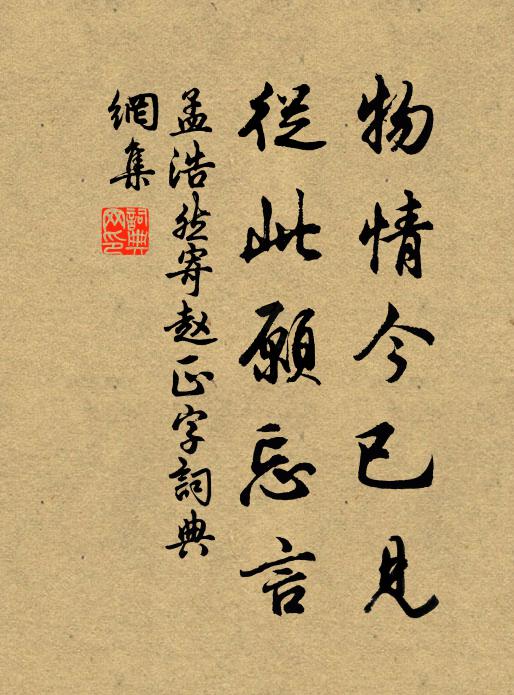 物情今已見
從此願忘言
孟浩然寄趙正字詞典
網集
詞典
网印